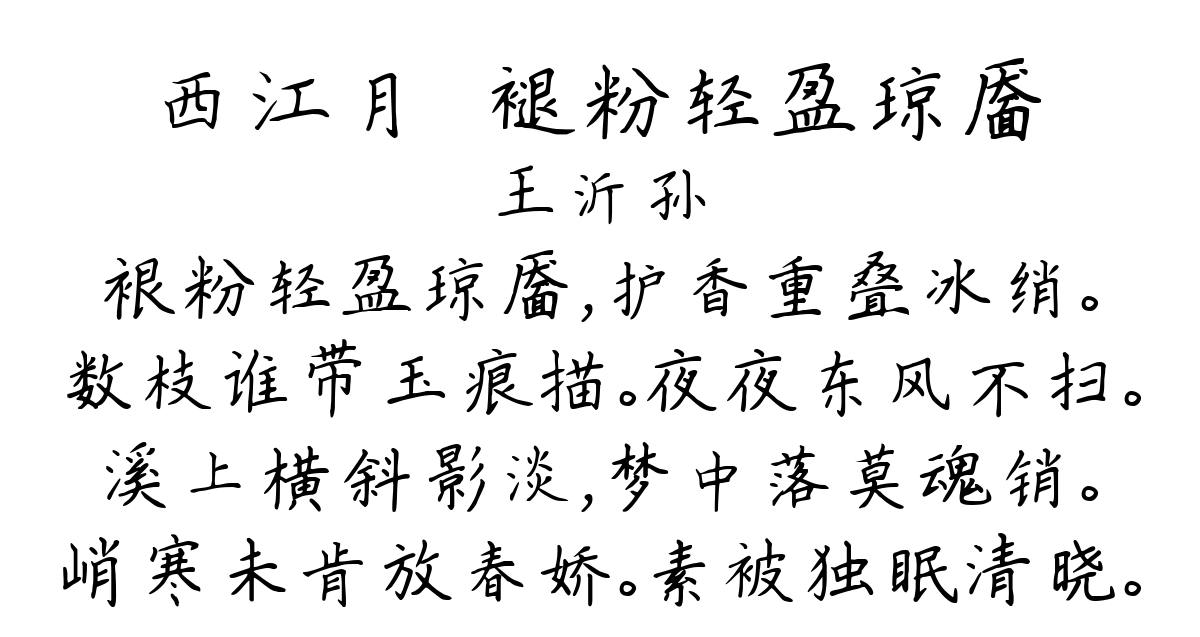 西江月 褪粉轻盈琼靥
王沂孙
裉粉轻盈琼靥,护香重叠冰绡。
数枝谁带玉痕描。夜夜东风不扫。
溪上横斜影淡,梦中落莫魂销。
峭寒未肯放春娇。素被独眠清晓。